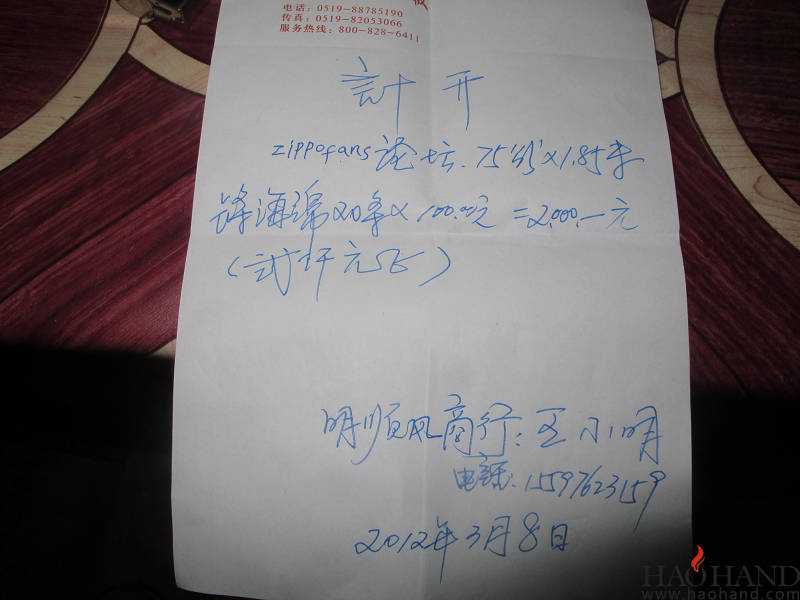 电话：0519-88785190
传真：0519-82053066
服务热线：800-828-6411
計开
zippofans论坛.75公分×1.85米
海绵20条×100.00元=2,000.一元
(贰仟元正)
明顺风商行：王小明
电话：15597623159
2012年3月8日
HAOHAND
www.haohand.com